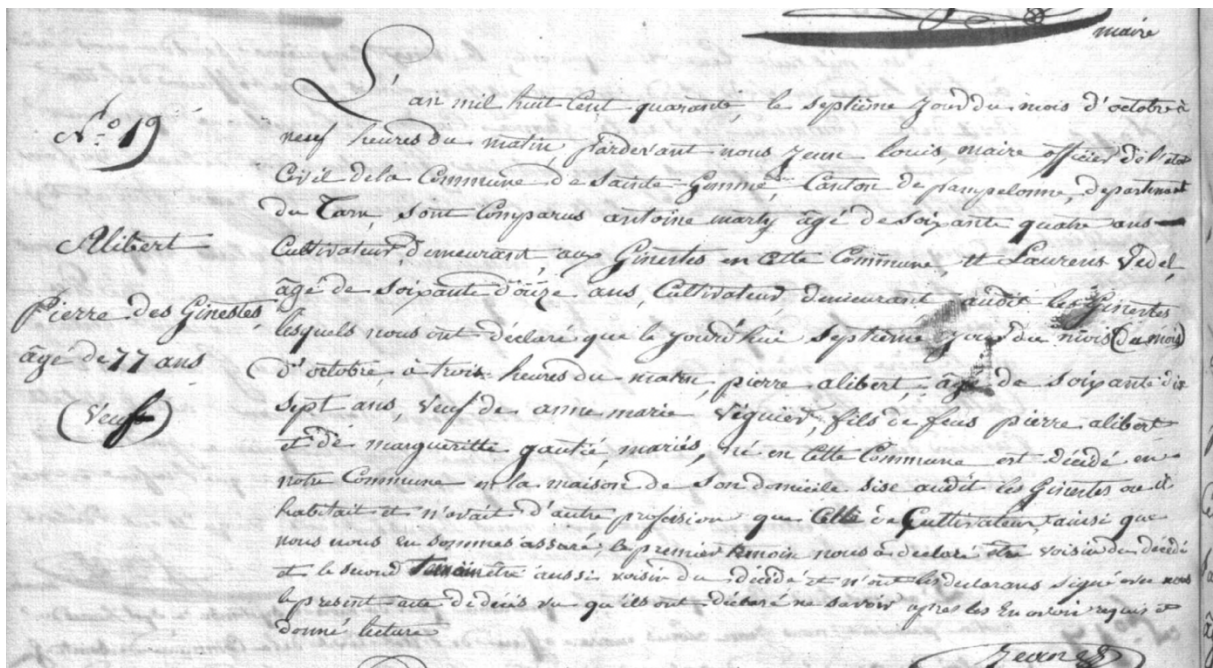 maire
N.o 19
Alibert
Pierre des Ginestes,
âgé de 77 ans
(Veuf)
L'an mil huit Cent quarante, le septième jour du mois d'octobre à
neuf heures du matin, pardevant nous Jean Louis, maire officier de l'état
Civil de la Commune de Sainte Gemme, Canton de pampelonne, département
du Tarn, sont Comparus antoine marty âgé de soixante quatre ans
Cultivateur, demeurant, aux Ginestes en cette Commune, et Laurens Vedel,
âgé de soixante douze ans, Cultivateur, demeurant audit les Ginestes
lesquels nous ont déclaré que le jourd'hui septième jour du mois (du mois)
d'octobre à trois heures du matin, pierre alibert, âgé de soixante dix
sept ans, Veuf de anne marie Viguier, fils de feus pierre alibert
et de margueritte gautié, mariés, né en Cette Commune est décédé en
notre Commune en la maison de son domicile sise audit les Ginestes ou il
habitait et n'avait d'autre profession que Celle de Cultivateur, ainsi que
nous nous en sommes assuré, le premier temoin nous a déclaré être voisin du décédé
et le second temoin être aussi voisin du décédé et n'ont les déclarans signé avec nous
le présent acte de décès vu qu'ils ont déclaré ne savoir après les En avoir requis et
donné lecture